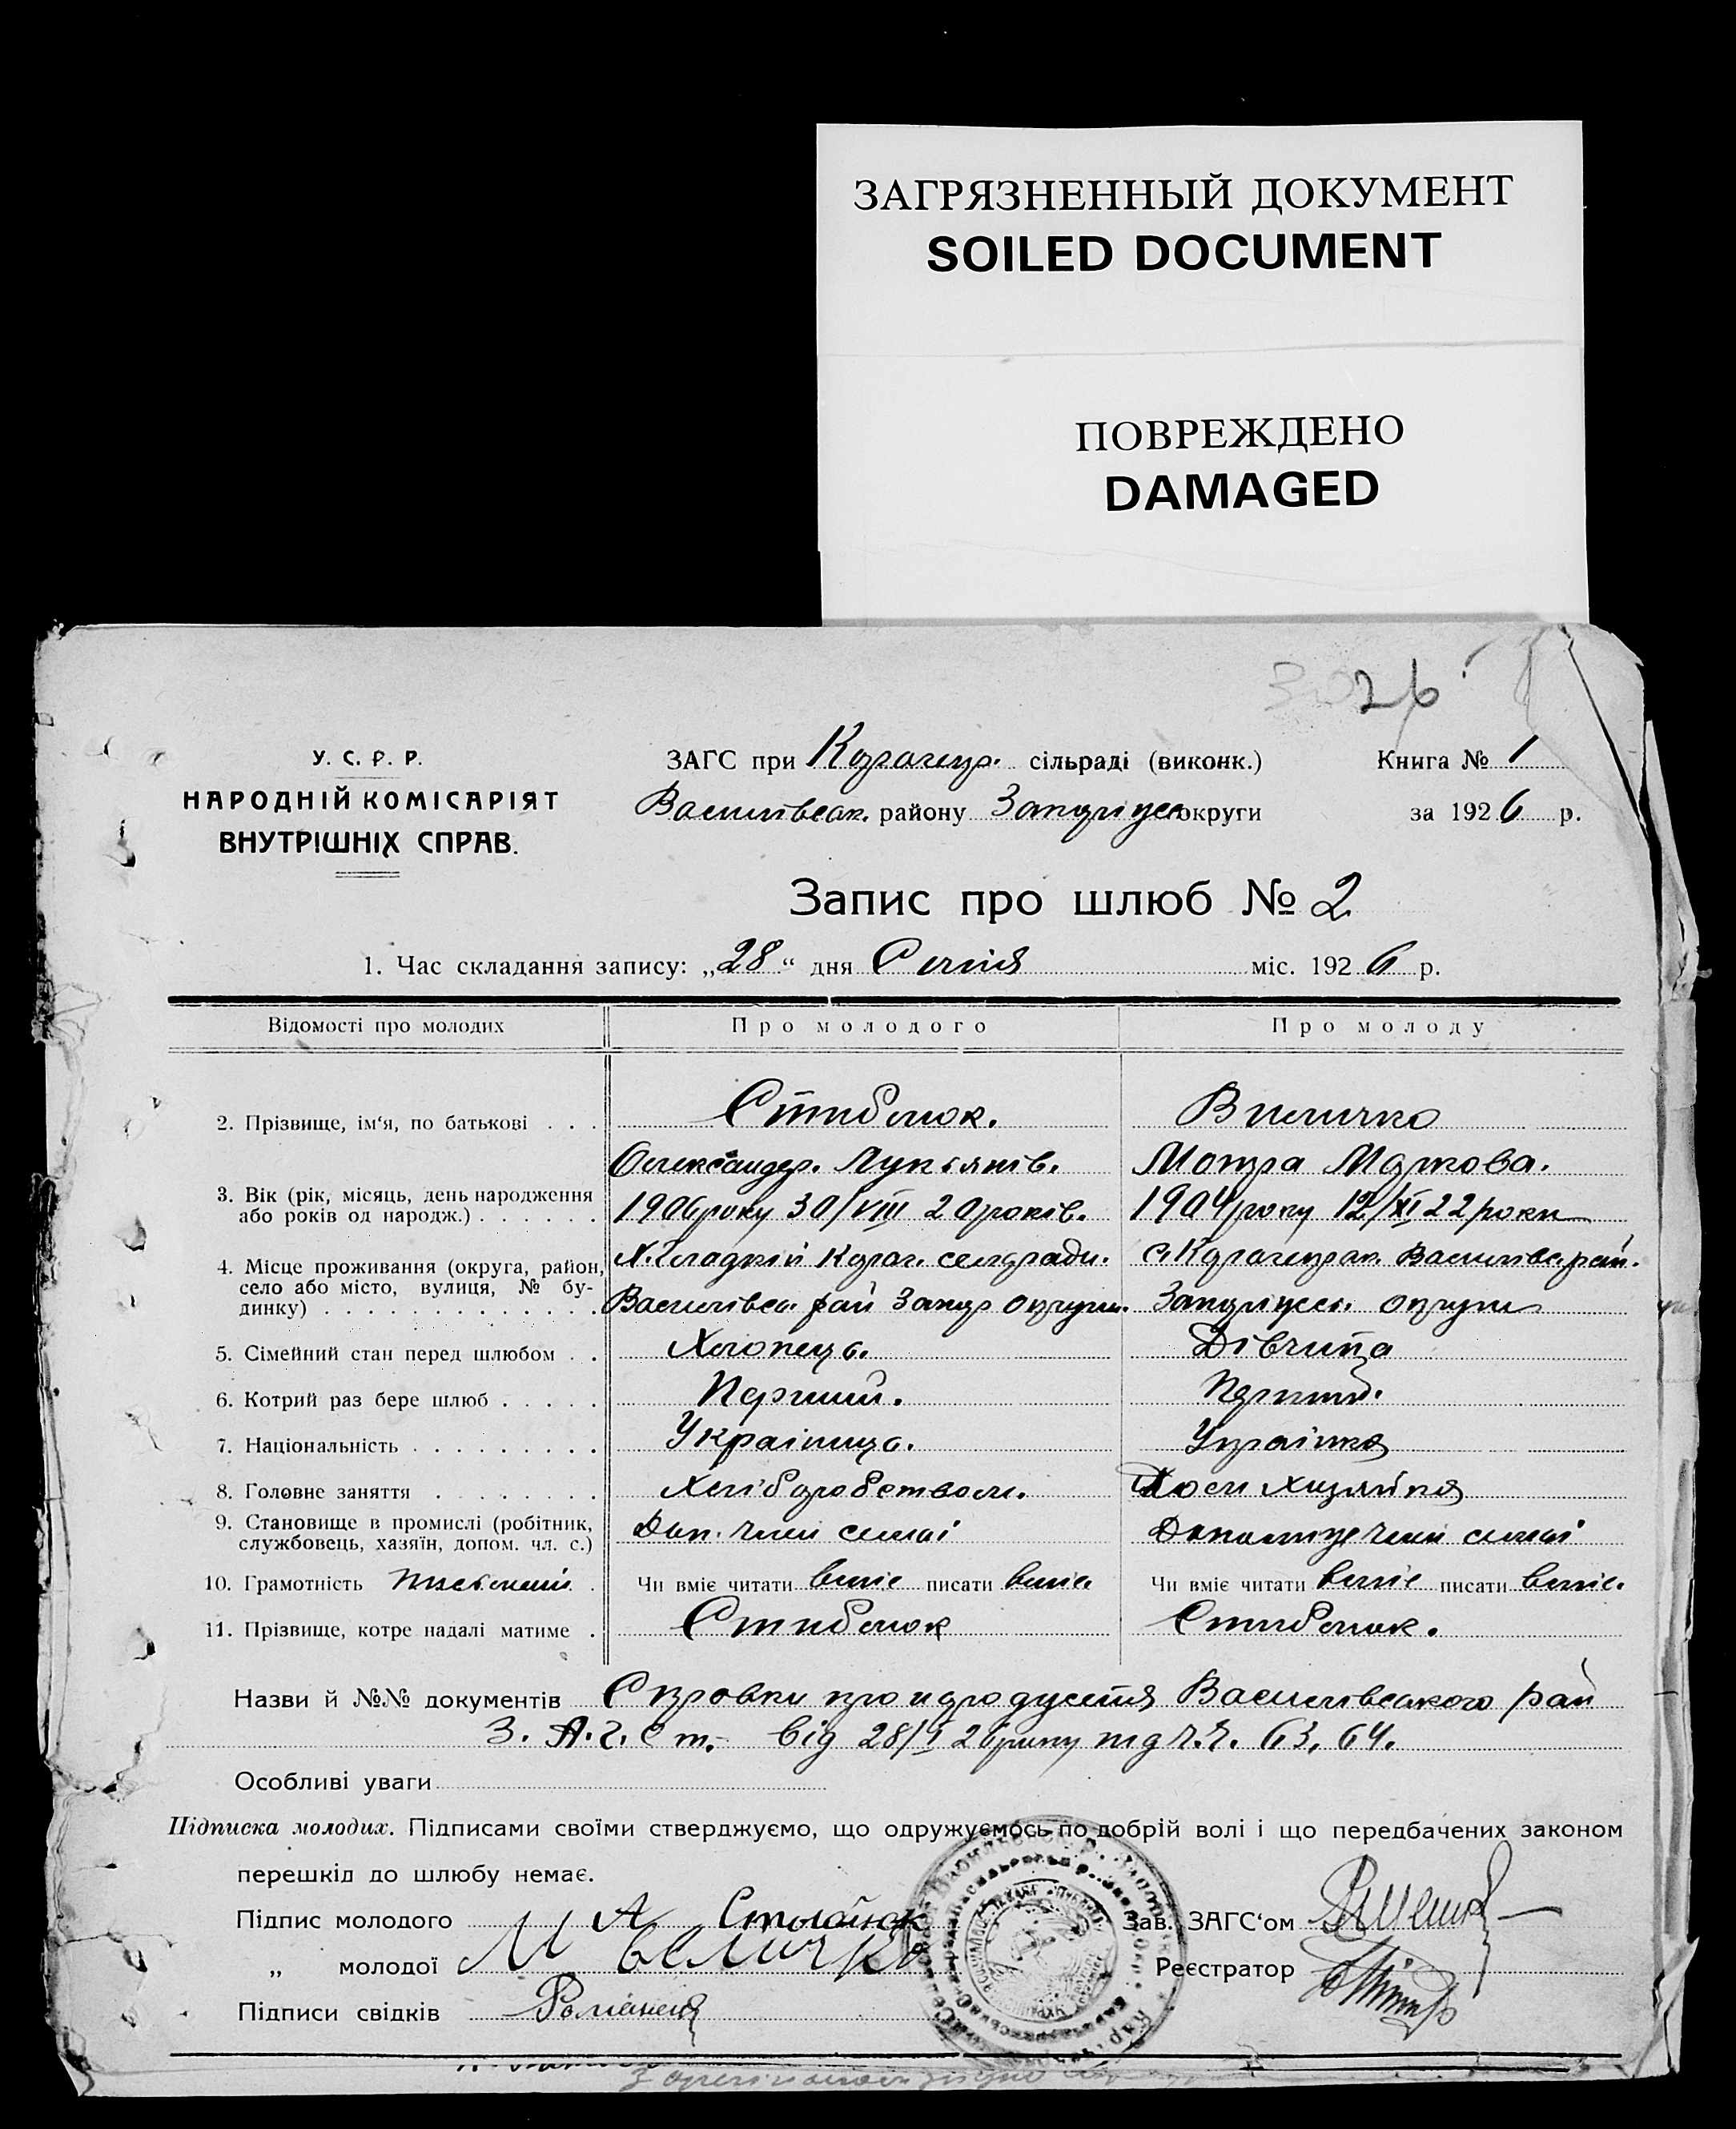 ЗАГРЯЗНЕННЫЙ ДОКУМЕНТ
SOILED DOCUMENT
ПОВРЕЖДЕНО
DAMAGED
26
У. С. Р. Р.
НАРОДНІЙ КОМІСАРІЯТ
ВНУТРІШНІХ СПРАВ.
ЗАГС при сільраді (виконк.) Книга № 1
Василівськ. району округи за 1926 р.
Запис про шлюб № 2
1. Час складання запису: „28“ дня Січня міс. 1926 р.
Відомості про молодих Про молодого Про молоду
2. Прізвище, ім‘я, по батькові . . . Стиблюк. Величко
Олександер. Лукьянів. Мотра Маркова.
3. Вік (рік, місяць, день народження
або років од народж.) . . . . . . 1906 року 30/VIII 20 років. 1904 року 12/XI 22 роки
4. Місце проживання (округа, район, село або місто, вулиця, № будинку) . . . . . . . . . . . . . Х. Гладкій
Василівськ. рай Запор округи. округи
5. Сімейний стан перед шлюбом . . Хлопець. Дівчина
6. Котрий раз бере шлюб . . . . . Перший. Перший.
7. Національність . . . . . . . . . Українець. Українка
8. Головне заняття . . . . . . . Хліборобством. Дом Хазяйка
9. Становище в промислі (робітник,
службовець, хазяїн, допом. чл. с.) Доп. член семьї член семьї
10. Грамотність Письменні . Чи вміє читати вміє писати вміє. Чи вміє читати вміє писати вміє.
11. Прізвище, котре надалі матиме . Стиблюк Стиблюк.
Назви й №№ документів Справки про Василівського рай
З. А. Г. С від 28/I 26 року під ч.ч. 63, 64.
Особливі уваги
Підписка молодих. Підписами своїми стверджуємо, що одружуємось по добрій волі і що передбачених законом
перешкід до шлюбу немає.
Підпис молодого А Зав. ЗАГС‘ом
„ молодої М Величко Реєстратор
Підписи свідків